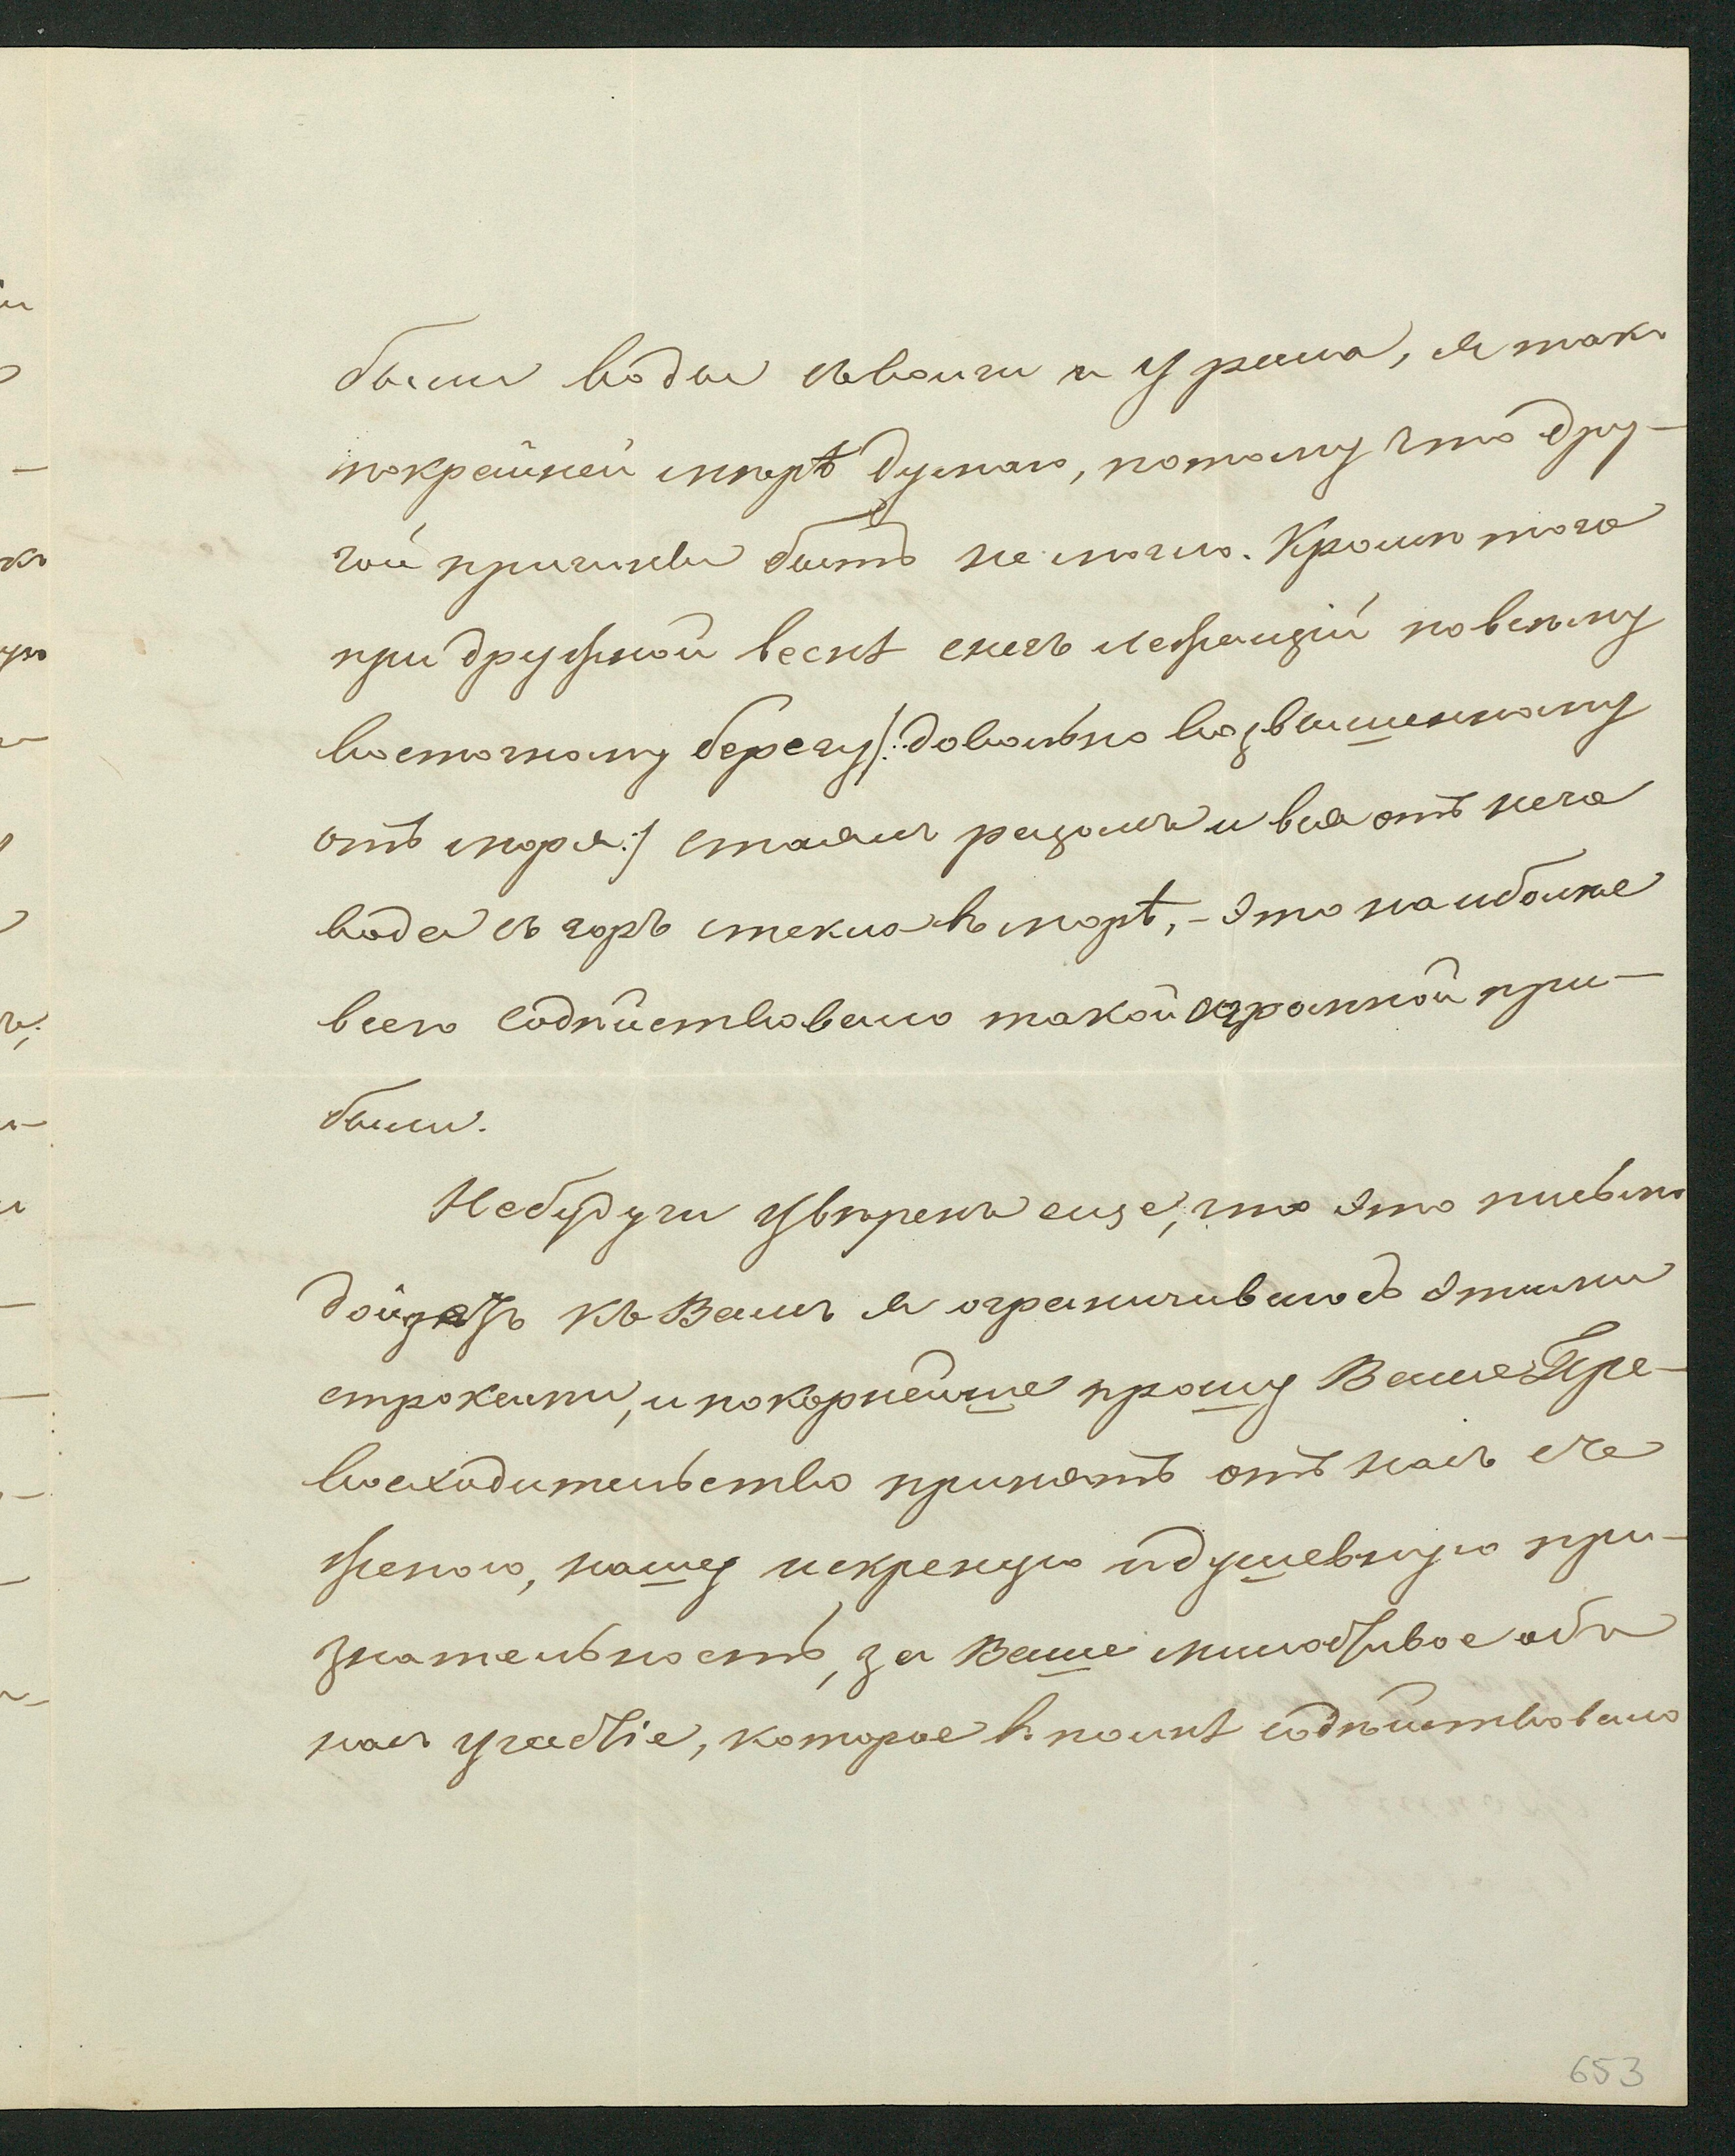 были воды съ волги и Урала, я такъ
покрайней мѣрѣ думаю, потому что дру-
гой причины быть не могло. Кромѣ того
при дружной веснѣ снегъ лежащій по всему
восточному берегу /: довольно возвышенному
отъ моря :/ стаялъ разомъ и вся отъ него
вода съ горъ стекла въ морѣ, - это наиболѣе
всего содѣйствовало такой огромной при-
были.
Небудучи увѣренъ еще, что это письмо
дойдетъ къ Вамъ я ограничиваюсь этими
строками, и покорнейше прошу Ваше Пре-
восходительство принять отъ насъ съ
женою, нашу искреную и душевную при-
знательность, за Ваше милостивое объ
насъ участіе, которое вполнѣ содѣйствовало
653